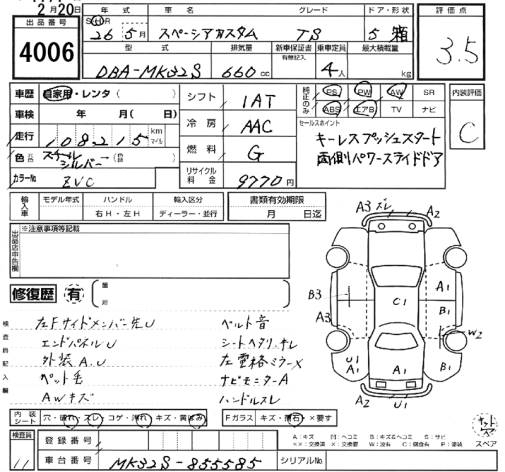 2月20日
出品番号
4006
年式 車名 グレード ドア・形状
26年5月 スペーシアカスタム TS 5 箱
型式 排気量 新車保証書 乗車定員 最大積載量
有無記入
DBA-MK32S 660cc 4人 kg
評価点
3.5
内装評価
C
車歴 自家用・レンタ( )
車検 年 月( 日)
走行 108,215 km マイル
色 スチールシルバー
カラーNo ZVC
シフト 1AT
冷房 AAC
燃料 G
リサイクル料金 9770円
純正のみ PS PW AW SR
ABS エアB TV ナビ
セールスポイント
キーレスプッシュスタート
両側パワースライドドア
輸入車 モデル年式 ハンドル 輸入区分
右H・左H ディーラー・並行
書類有効期限
月 日迄
出品店申告欄
※注意事項等記載
修復歴 有
検査員記入欄
左FサイドメンバーU
エンドパネルU
外装A,U
ペット毛
AWキズ
ベルト音
シートヘタリ、キレ
左電格ミラーX
ナビモニターA
ハンドルスレ
A3 ズレ A2
B3
A3
C1
A1
A1
B1
B1
W2
U1
A1
A1
A2
U1
A2
内装シート 穴・破れ・スレ・コゲ・汚れ・キズ・黄ばみ
Fガラス キズ・飛石・×要す
スペア
検査員 11
登録番号
車台番号 MK32S-855585
シリアルNo
A:キズ U:ヘコミ B:キズ&ヘコミ S:サビ
××:交換済 X:交換要 W:波有 C:腐食有 P:塗装